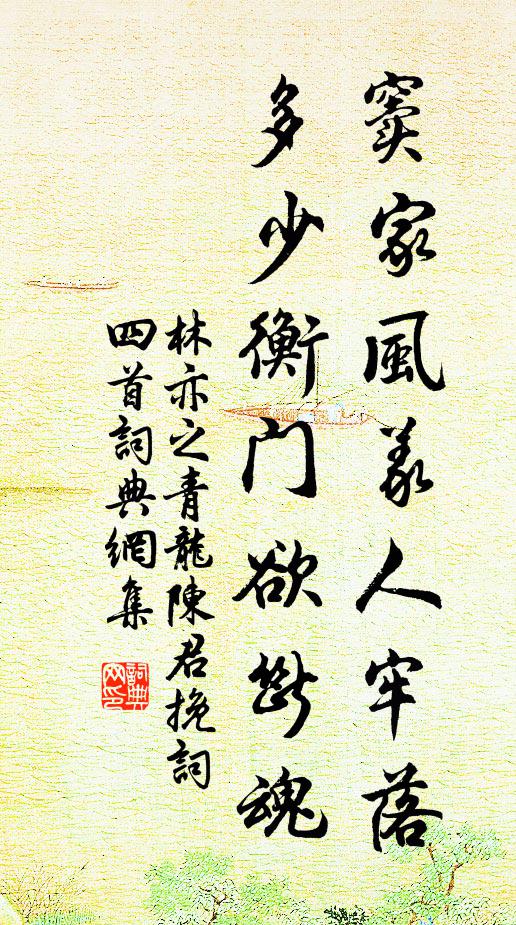 窦家風義人牢落
多少衡門欲断魂
林亦之青龍陳君挽詞
四首詞典網集
詞典网印